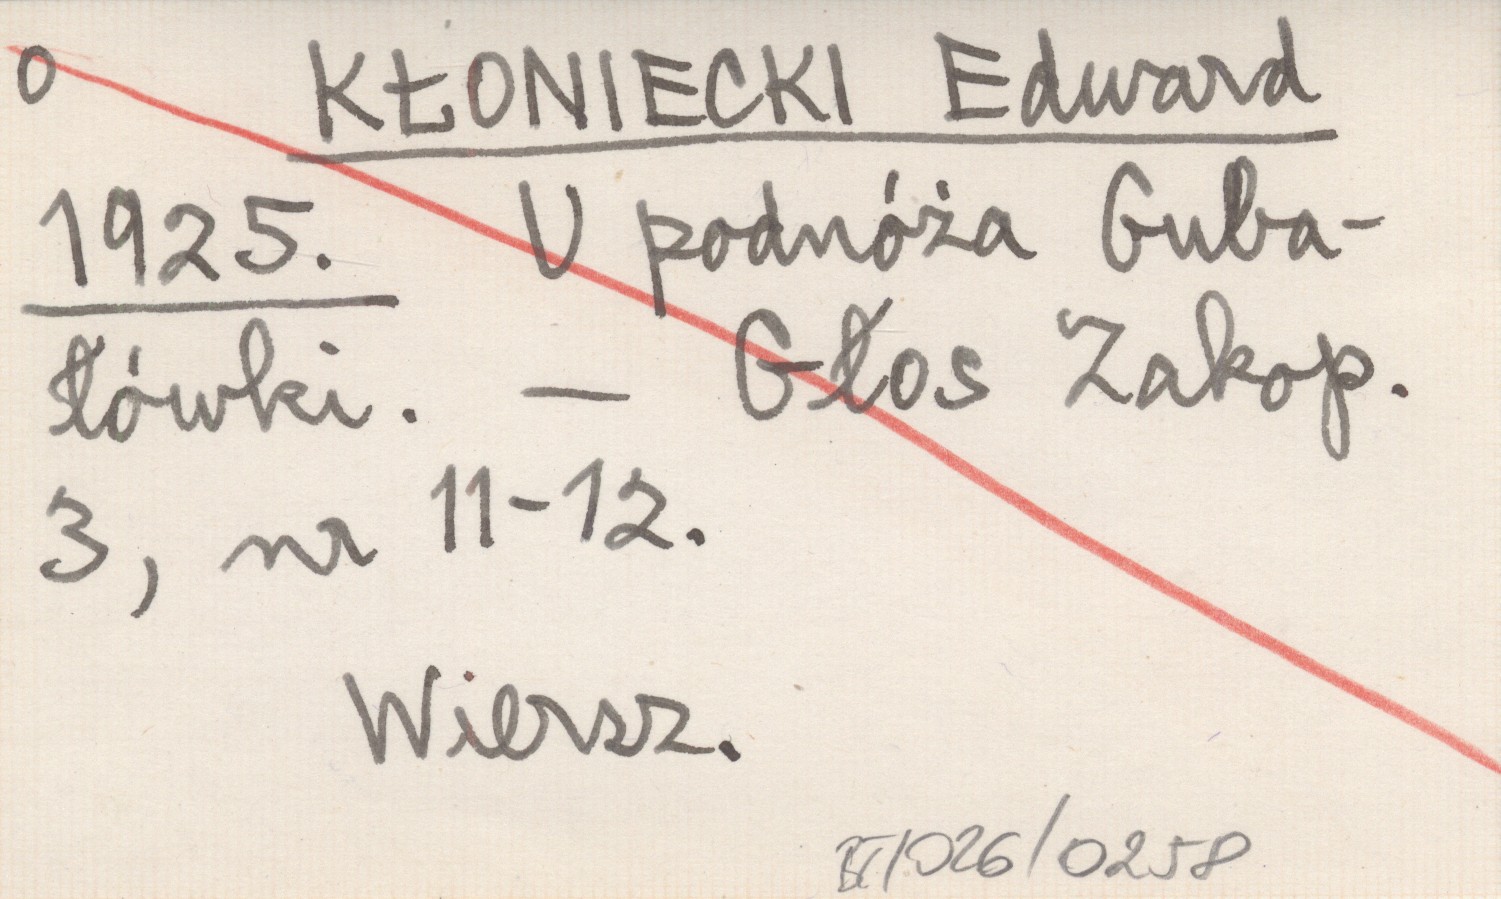 0 KŁONIECKI Edward
1925. U podnóża Guba-
łówki. — Głos Zakop.
3, nr 11-12.
Wiersz.
/026/0258